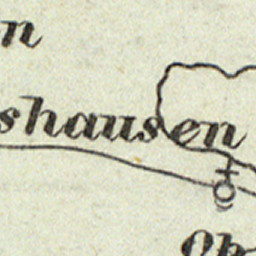 n
shausen
Ob